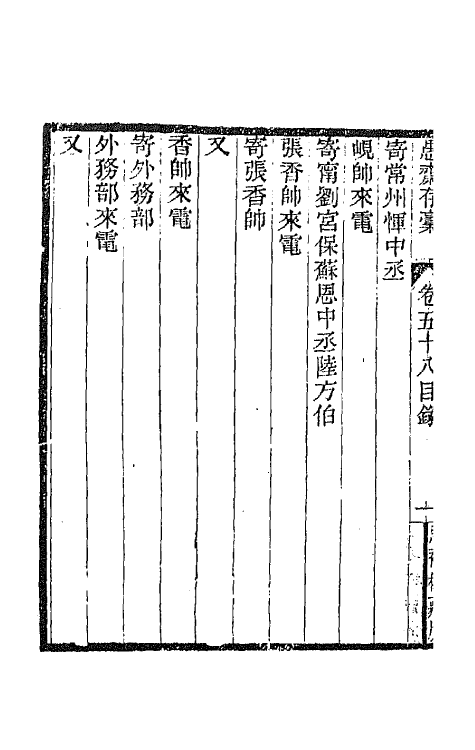 愚齋存稾
卷五十八目錄
寄常州惲中丞
峴帥來電
寄甯劉宮保蘇恩中丞陸方伯
張香帥來電
寄張香帥
又
香帥來電
寄外務部
外務部來電
又